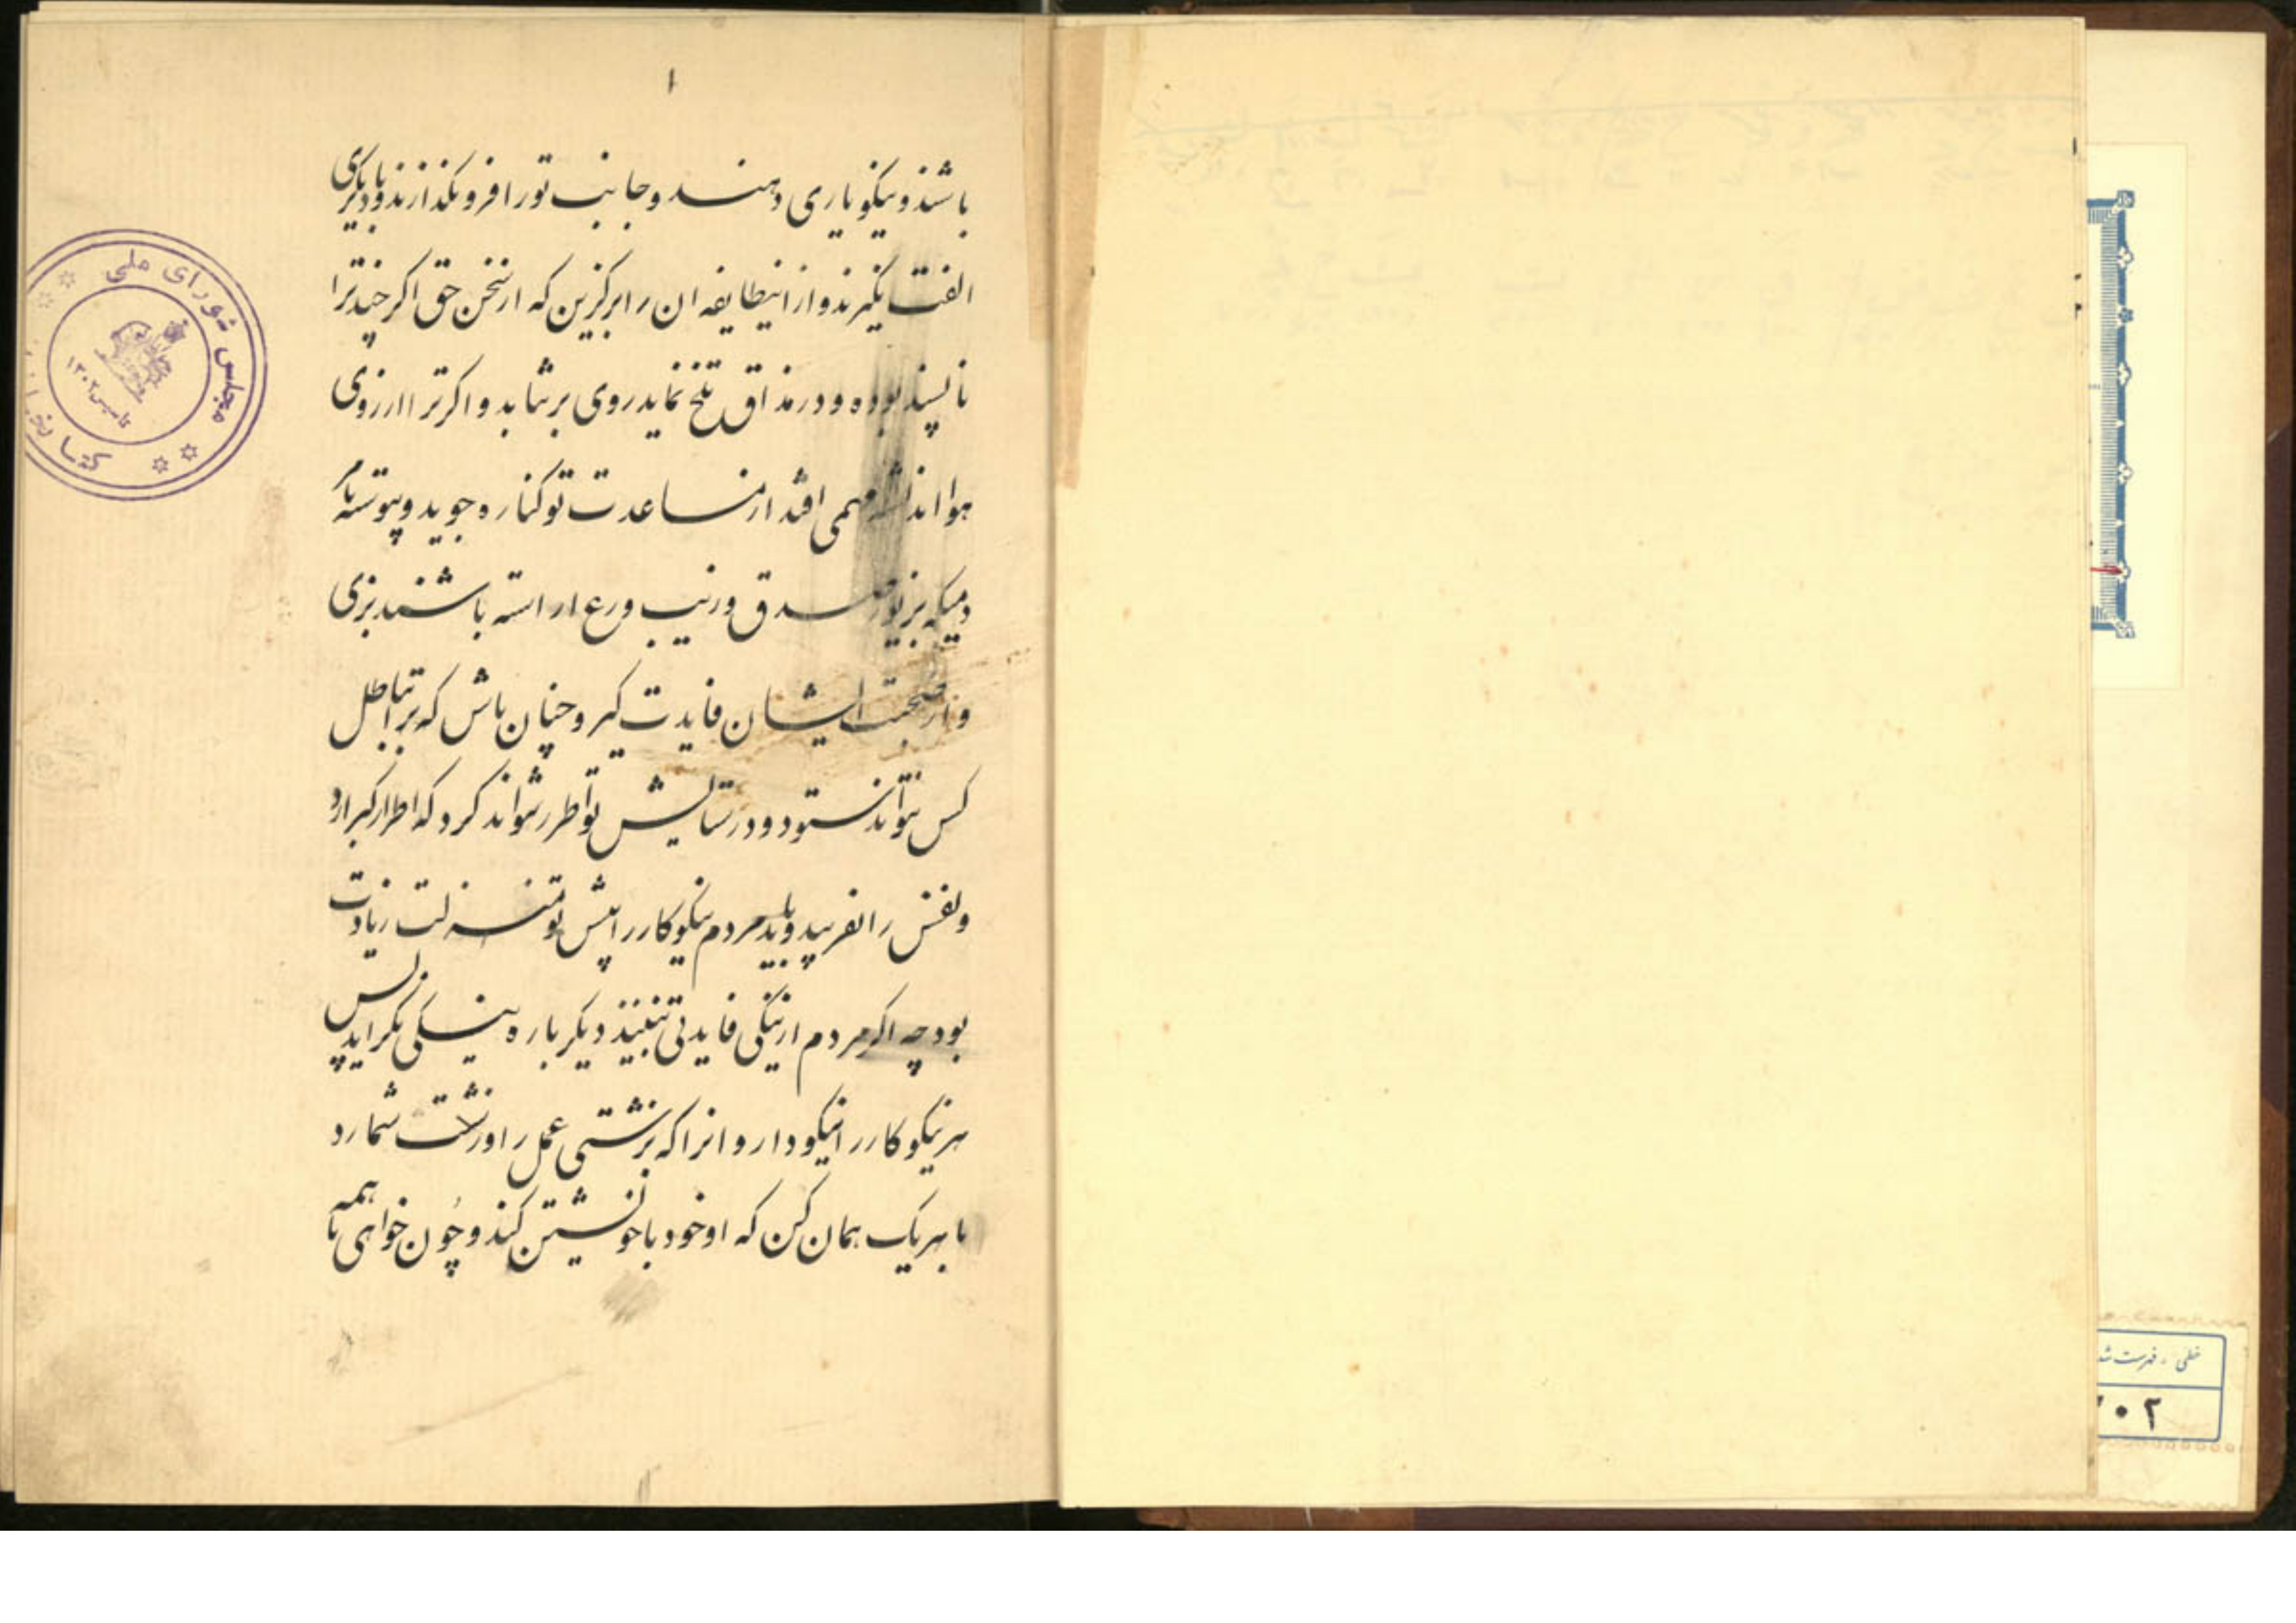 ۱
باشند و نیکو یاری دهند و جانب تو را فرو نگذارند و با دیگری
الفت نگیرند و از اینطایفه ان را برگزین که از سخن حق اگر چند ترا
ناپسند بوده و در مذاق تلخ نماید روی برنتابد و اگر ترا ارزوی
هوا اندیشه مهمی افتد از مساعدت تو کناره جوید و پیوسته با مر
دمیکه بزیور صدق و زیب ورع اراسته باشند بزی
و از صحبت ایشان فایدت گیر و چنان باش که ترا بباطل
کس نتواند ستود و در ستایش تو اطرا نتواند کرد که اطرا کبر ارد
و نفس را بفریبد و باید مردم نیکوکار را پیش تو منزلت زیادت
بود چه اگر مردم از نیکی فایدتی نبینند دیگر باره به نیکی نگرایند پس
هر نیکوکار را نیکو دار و انرا که بزشتی عمل رود زشت شمار
با هر یک همان کن که او خود با خویشتن کند و چون خواهی با همه
مجلس شورای ملی
کتابخانه
تاسیس ۱۳۰۲
خطی - فهرست شد
۰۲